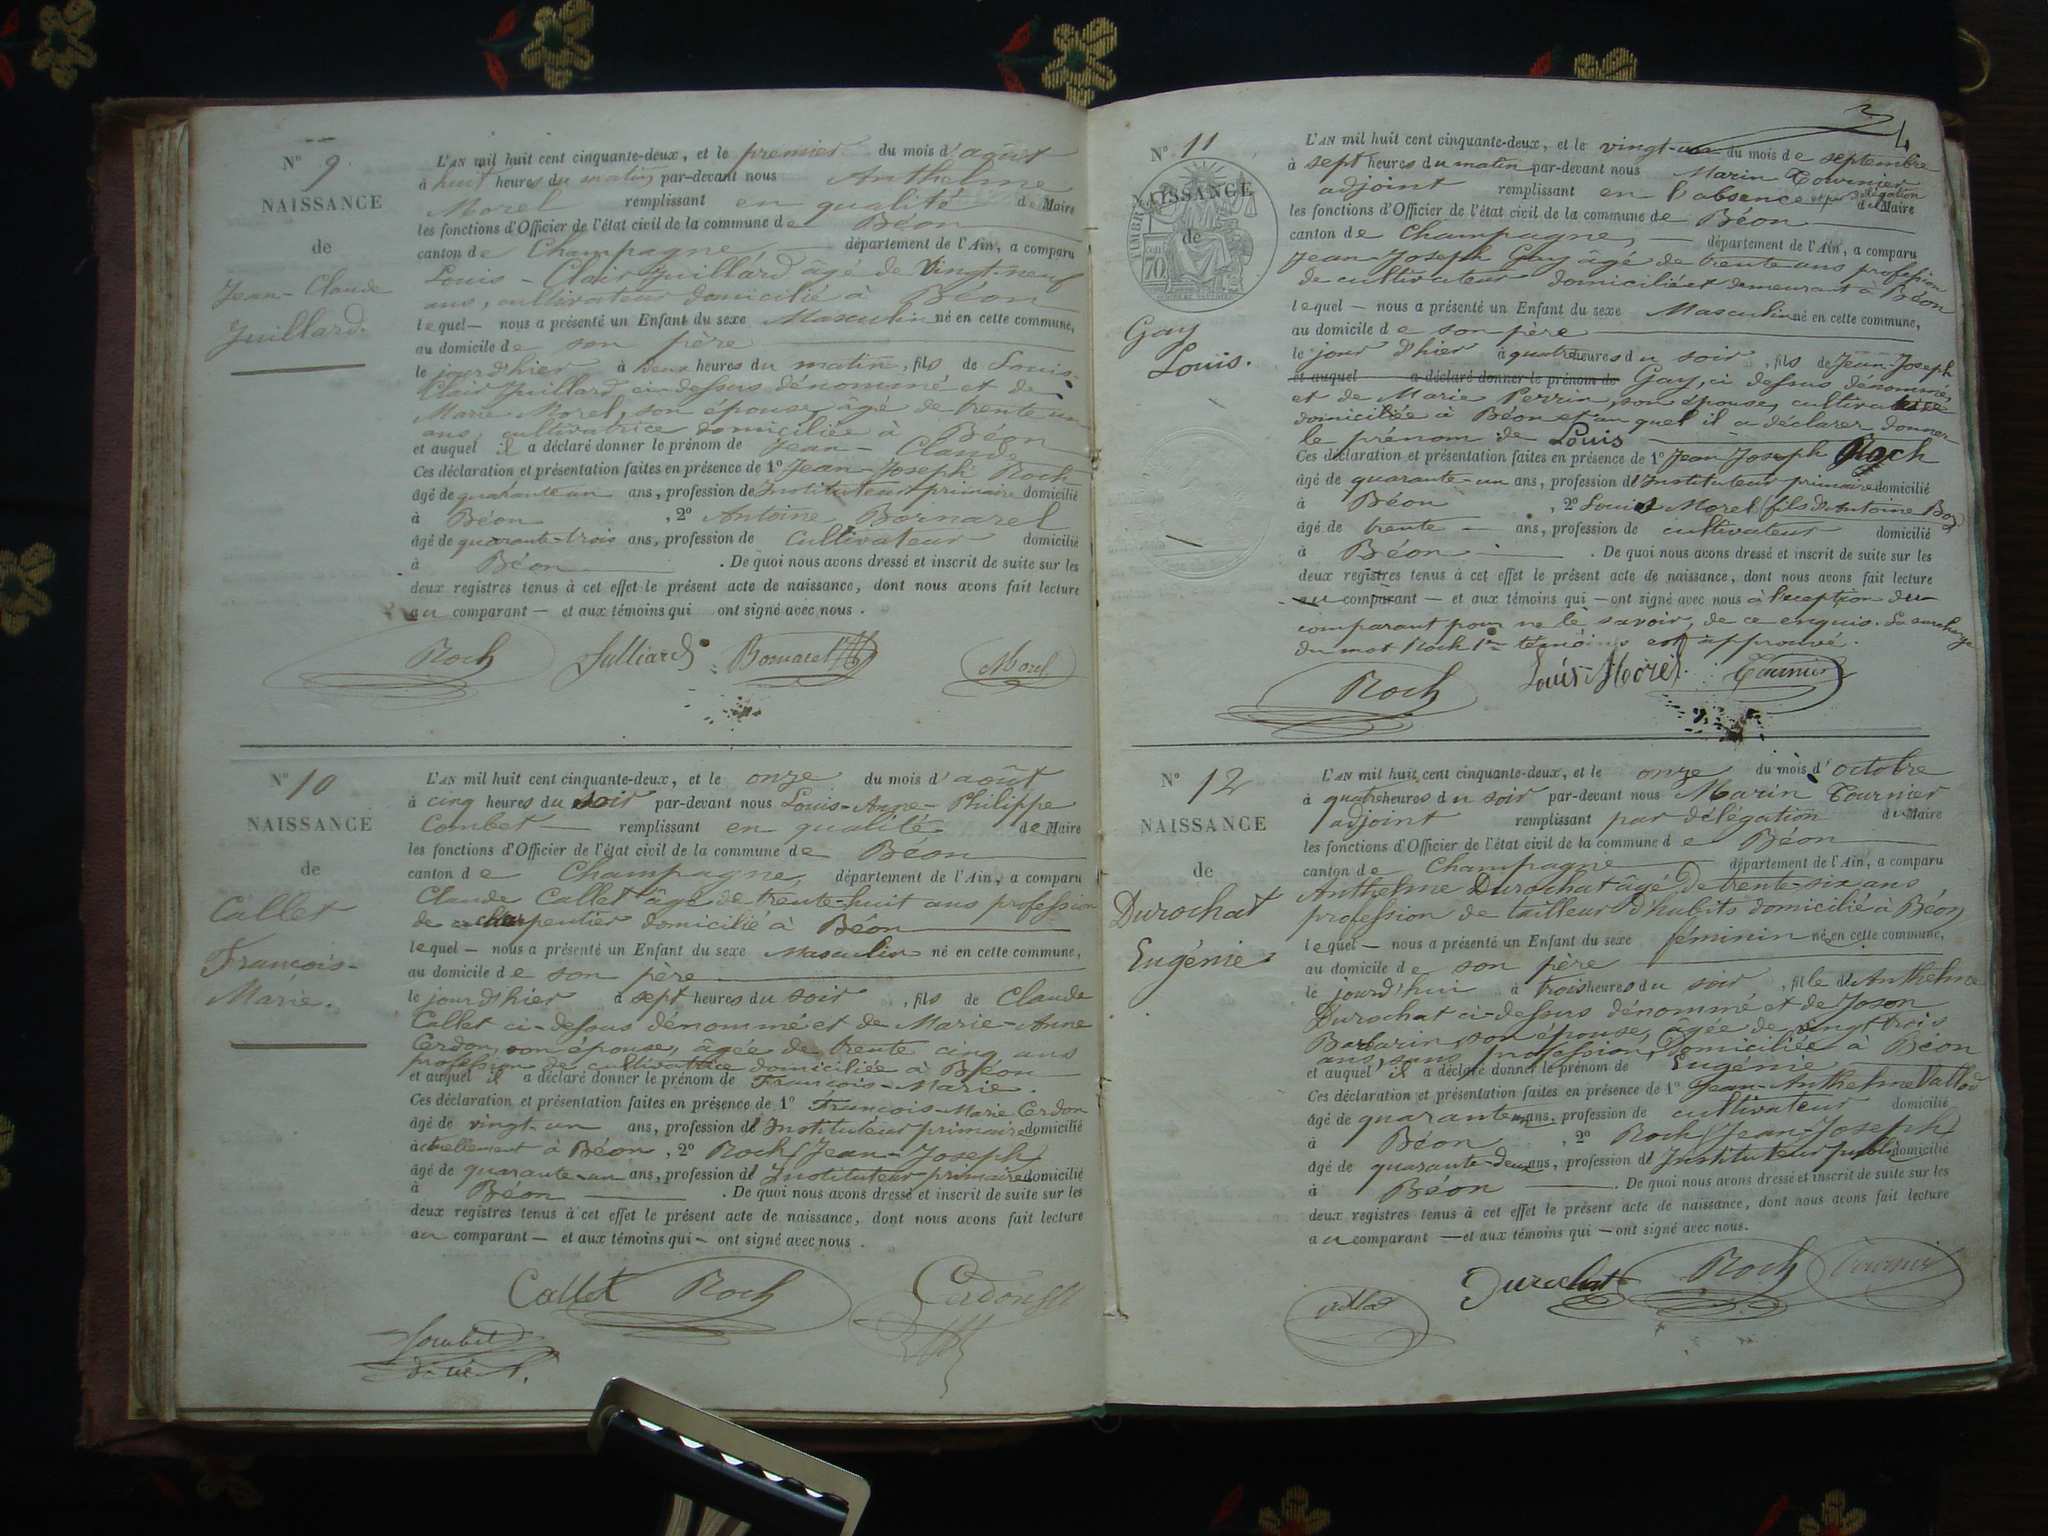 N° 9
NAISSANCE
de
Jean-Claude
Juillard.
L'AN mil huit cent cinquante-deux, et le premier du mois d'août
à huit heures du matin par-devant nous Anthelme
Morel remplissant en qualité de Maire
les fonctions d'Officier de l'état civil de la commune de Béon
canton de Champagne, département de l'Ain, a comparu
Louis-Clair Juillard âgé de vingt-neuf
ans, cultivateur domicilié à Béon
lequel nous a présenté un Enfant du sexe Masculin né en cette commune,
au domicile de son père
le jour d'hier à deux heures du matin, fils de Louis-
Clair Juillard ci-dessus dénommé et de
Marie Morel, son épouse, âgé de trente un
ans, cultivatrice domiciliée à Béon
et auquel il a déclaré donner le prénom de Jean-Claude
Ces déclaration et présentation faites en présence de 1° Jean-Joseph Roch
âgé de quarante un ans, profession de Instituteur primaire domicilié
à Béon, 2° Antoine Bornarel
âgé de quarante-trois ans, profession de Cultivateur domicilié
à Béon. De quoi nous avons dressé et inscrit de suite sur les
deux registres tenus à cet effet le présent acte de naissance, dont nous avons fait lecture
au comparant et aux témoins qui ont signé avec nous.
Roch Julliard Bornarel Morel
N° 10
NAISSANCE
de
Callet
François-
Marie.
L'AN mil huit cent cinquante-deux, et le onze du mois d'août
à cinq heures du soir par-devant nous Louis-Anne-Philippe
Combet remplissant en qualité de Maire
les fonctions d'Officier de l'état civil de la commune de Béon
canton de Champagne, département de l'Ain, a comparu
Claude Callet âgé de trente-huit ans profession
de charpentier domicilié à Béon
lequel nous a présenté un Enfant du sexe Masculin né en cette commune,
au domicile de son père
le jour d'hier à sept heures du soir, fils de Claude
Callet ci-dessus dénommé et de Marie-Anne
Cerdon, son épouse, âgée de trente cinq ans
profession de cultivatrice domiciliée à Béon
et auquel il a déclaré donner le prénom de François-Marie.
Ces déclaration et présentation faites en présence de 1° François-Marie Cerdon
âgé de vingt-un ans, profession d'Instituteur primaire domicilié
actuellement à Béon, 2° Roch Jean-Joseph
âgé de quarante-un ans, profession d'Instituteur primaire domicilié
à Béon. De quoi nous avons dressé et inscrit de suite sur les
deux registres tenus à cet effet le présent acte de naissance, dont nous avons fait lecture
au comparant et aux témoins qui ont signé avec nous.
Callet Roch Cerdon
Combet
N° 11
NAISSANCE
de
Gay
Louis.
L'AN mil huit cent cinquante-deux, et le vingt-un du mois de septembre
à sept heures du matin par-devant nous Marin Tournier
adjoint remplissant en l'absence et par délégation du Maire
les fonctions d'Officier de l'état civil de la commune de Béon
canton de Champagne, département de l'Ain, a comparu
Jean-Joseph Gay âgé de trente ans profession
de cultivateur domicilié et demeurant à Béon
lequel nous a présenté un Enfant du sexe Masculin né en cette commune,
au domicile de son père
le jour d'hier à quatre heures du soir, fils de Jean-Joseph
et auquel a déclaré donner le prénom de Gay, ci dessus dénommé,
et de Marie Perrin, son épouse, cultivatrice
domiciliée à Béon et au quel il a déclarer donner
le prénom de Louis
Ces déclaration et présentation faites en présence de 1° Jean Joseph Roch
âgé de quarante-un ans, profession d'Instituteur primaire domicilié
à Béon, 2° Louis Morel (fils d'Antoine
âgé de trente ans, profession de cultivateur domicilié
à Béon. De quoi nous avons dressé et inscrit de suite sur les
deux registres tenus à cet effet le présent acte de naissance, dont nous avons fait lecture
au comparant et aux témoins qui ont signé avec nous à l'exception du
comparant pour ne le savoir, de ce enquis. La surcharge
du mot Roch 1er témoins est approuvé.
Roch Louis Morel Tournier
N° 12
NAISSANCE
de
Durochat
Eugénie
L'AN mil huit cent cinquante-deux, et le onze du mois d'octobre
à quatre heures du soir par-devant nous Marin Tournier
adjoint remplissant par délégation du Maire
les fonctions d'Officier de l'état civil de la commune de Béon
canton de Champagne département de l'Ain, a comparu
Anthelme Durochat âgé de trente-six ans
profession de tailleur d'habits domicilié à Béon
lequel nous a présenté un Enfant du sexe féminin né en cette commune,
au domicile de son père
le jourd'hui à trois heures du soir, fille de Anthelme
Durochat ci-dessus dénommé et de Joson
Barbarin, son épouse, âgée de vingt trois
ans, sans profession, domiciliée à Béon
et auquel il a déclaré donner le prénom de Eugénie
Ces déclaration et présentation faites en présence de 1° Jean-Anthelme Vallod
âgé de quarante un ans, profession de cultivateur domicilié
à Béon, 2° Roch Jean-Joseph
âgé de quarante-deux ans, profession d'Instituteur public domicilié
à Béon. De quoi nous avons dressé et inscrit de suite sur les
deux registres tenus à cet effet le présent acte de naissance, dont nous avons fait lecture
au comparant et aux témoins qui ont signé avec nous.
Durochat Roch Tournier